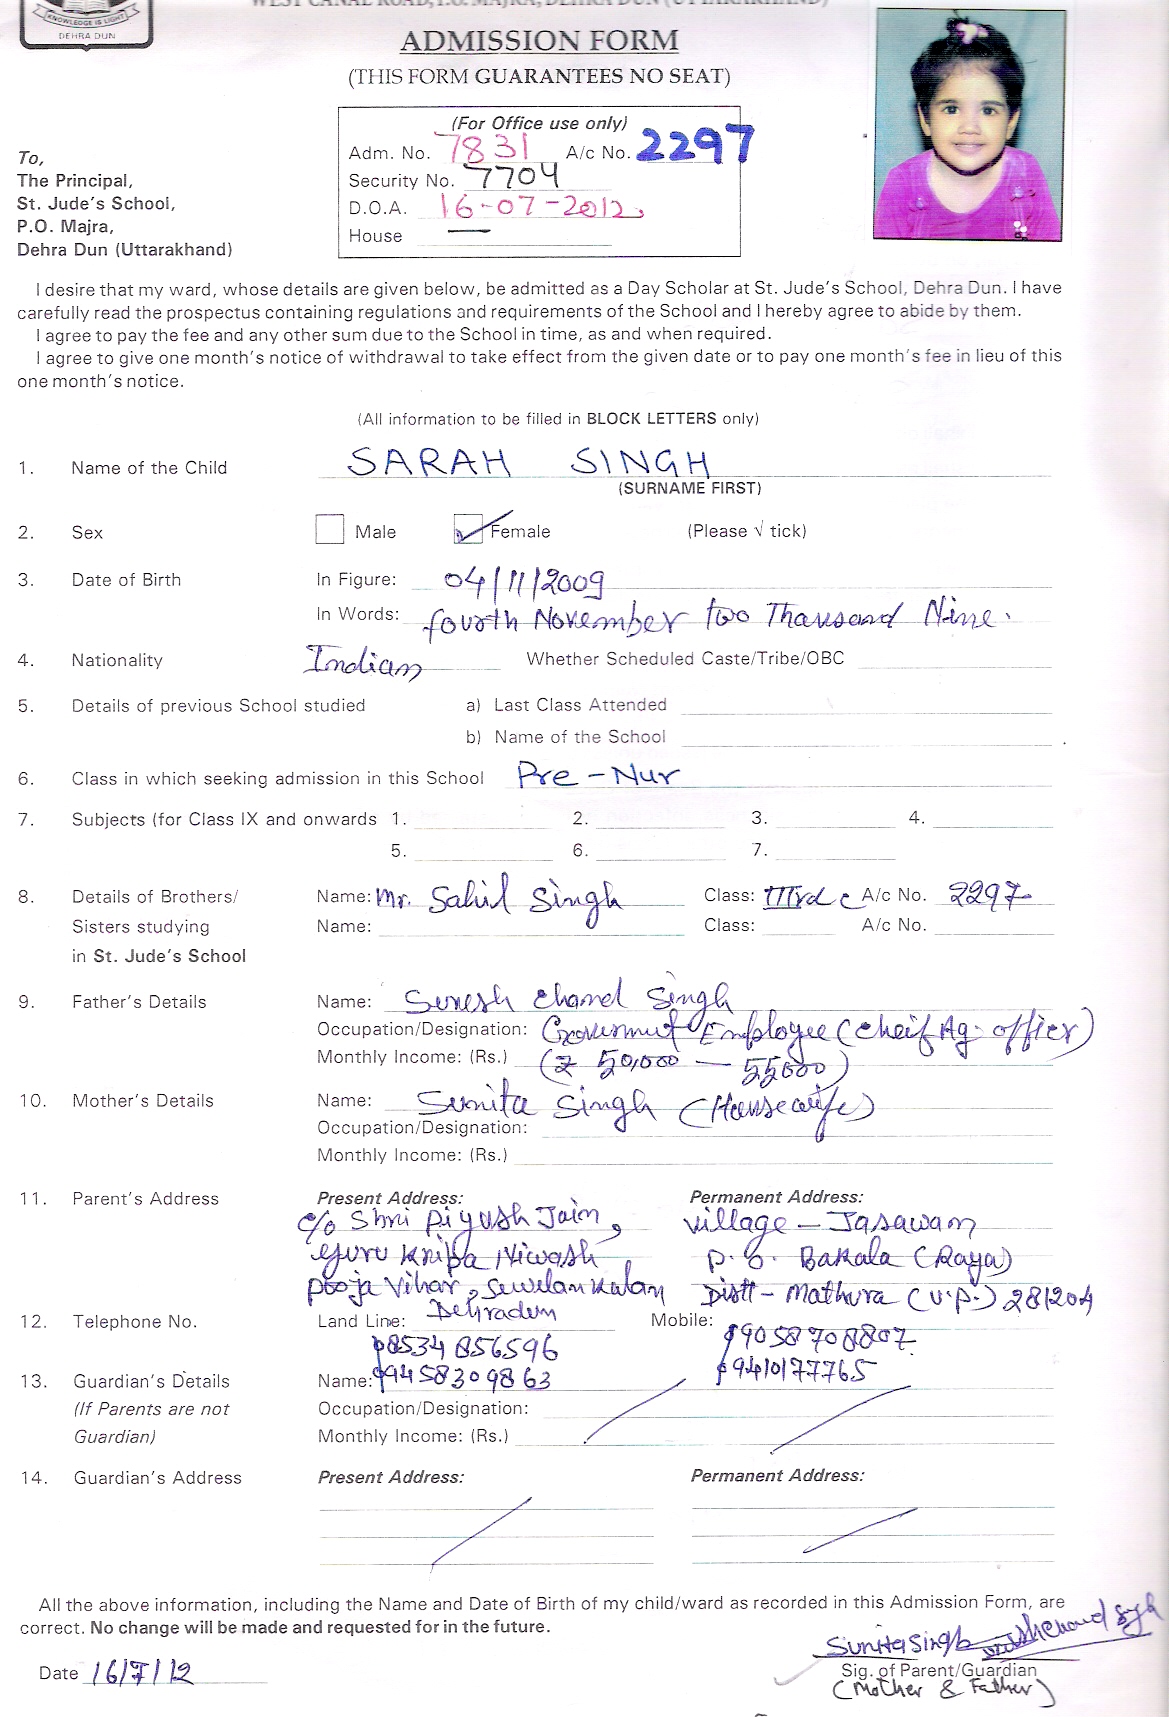 KNOWLEDGE IS LIGHT
DEHRA DUN
WEST CANAL ROAD, P.O. MAJRA, DEHRA DUN (UTTARAKHAND)
ADMISSION FORM
(THIS FORM GUARANTEES NO SEAT)
(For Office use only)
Adm. No. 7831 A/c No. 2297
Security No. 7704
D.O.A. 16-07-2012.
House —
To,
The Principal,
St. Jude's School,
P.O. Majra,
Dehra Dun (Uttarakhand)
I desire that my ward, whose details are given below, be admitted as a Day Scholar at St. Jude's School, Dehra Dun. I have
carefully read the prospectus containing regulations and requirements of the School and I hereby agree to abide by them.
I agree to pay the fee and any other sum due to the School in time, as and when required.
I agree to give one month's notice of withdrawal to take effect from the given date or to pay one month's fee in lieu of this
one month's notice.
(All information to be filled in BLOCK LETTERS only)
1. Name of the Child SARAH SINGH
(SURNAME FIRST)
2. Sex Male Female (Please √ tick)
3. Date of Birth In Figure: 04/11/2009
In Words: fourth November two Thousand Nine.
4. Nationality Indian Whether Scheduled Caste/Tribe/OBC
5. Details of previous School studied a) Last Class Attended
b) Name of the School
6. Class in which seeking admission in this School Pre-Nur
7. Subjects (for Class IX and onwards 1. 2. 3. 4.
5. 6. 7.
8. Details of Brothers/ Name: Mr. Sahil Singh Class: IIIrd C A/c No. 2297
Sisters studying Name: Class: A/c No.
in St. Jude's School
9. Father's Details Name: Suresh Chand Singh
Occupation/Designation: Government Employee (Cheif Ag. officer)
Monthly Income: (Rs.) (₹ 50,000 — 55000)
10. Mother's Details Name: Sunita Singh (Housewife)
Occupation/Designation:
Monthly Income: (Rs.)
11. Parent's Address Present Address: Permanent Address:
c/o Shri Piyush Jain, village - Jasawam
Guru Kripa Niwash P.O. Bakala (Raya)
Pooja Vihar, Sewlan Kalan Distt- Mathura (U.P.) 281204
Dehradun
12. Telephone No. Land Line: Mobile:
8534856596 9058708807
13. Guardian's Details Name: 9458309863 9410177765
(If Parents are not Occupation/Designation:
Guardian) Monthly Income: (Rs.)
14. Guardian's Address Present Address: Permanent Address:
All the above information, including the Name and Date of Birth of my child/ward as recorded in this Admission Form, are
correct. No change will be made and requested for in the future.
Sunita Singh
Date 16/7/12 Sig. of Parent/Guardian
(Mother & Father)